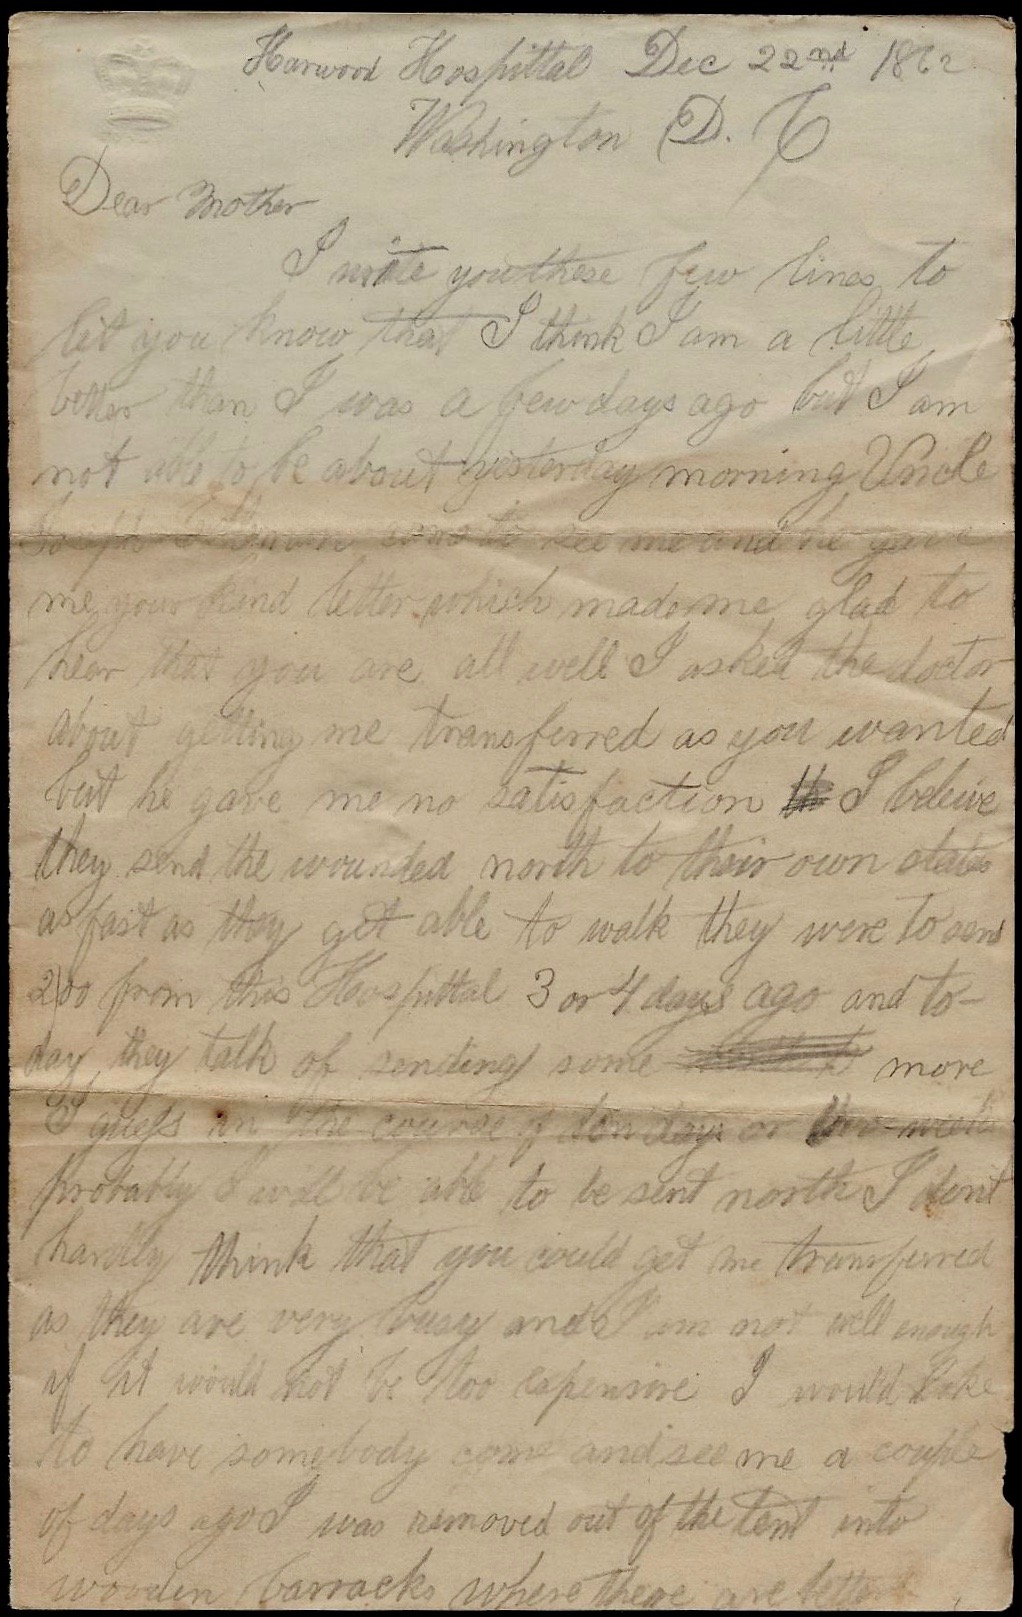 Harwood Hospittal Dec 22nd 1862
Washington D. C
Dear Mother
I write you these few lines to
let you know that I think I am a little
better than I was a few days ago but I am
not able to be about yesterday morning Uncle
Joseph came to see me and he gave
me your kind letter which made me glad to
hear that you are all well I asked the doctor
about getting me transferred as you wanted
but he gave me no satisfaction I beleive
they send the wounded north to their own states
as fast as they get able to walk they were to send
200 from this Hospittal 3 or 4 days ago and to-
day they talk of sending some more
I guess in the course of ten days or two weeks
probably I will be able to be sent north I don't
hardly think that you could get me transferred
as they are very busy and I am not well enough
if it would not be too expensive I would like
to have somebody come and see me a couple
of days ago I was removed out of the tent into
wooden barracks where there are better